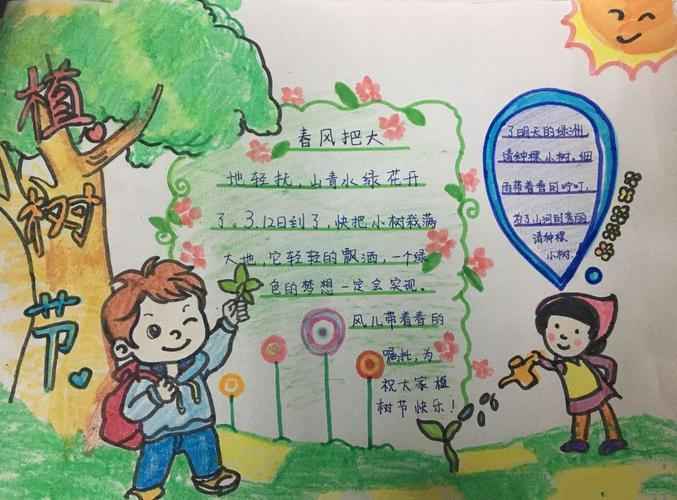 植树节
春风把大
地轻抚，山青水绿花开
了。3.12日到了，快把小树栽满
大地，它轻轻的飘洒，一个绿
色的梦想一定会实现。
风儿带着春的
嘱托，为
祝大家植
树节快乐！
了明天的绿洲
请种棵小树，细
雨藏着春的叮咛，
为了小河的春图
请种棵
小树.